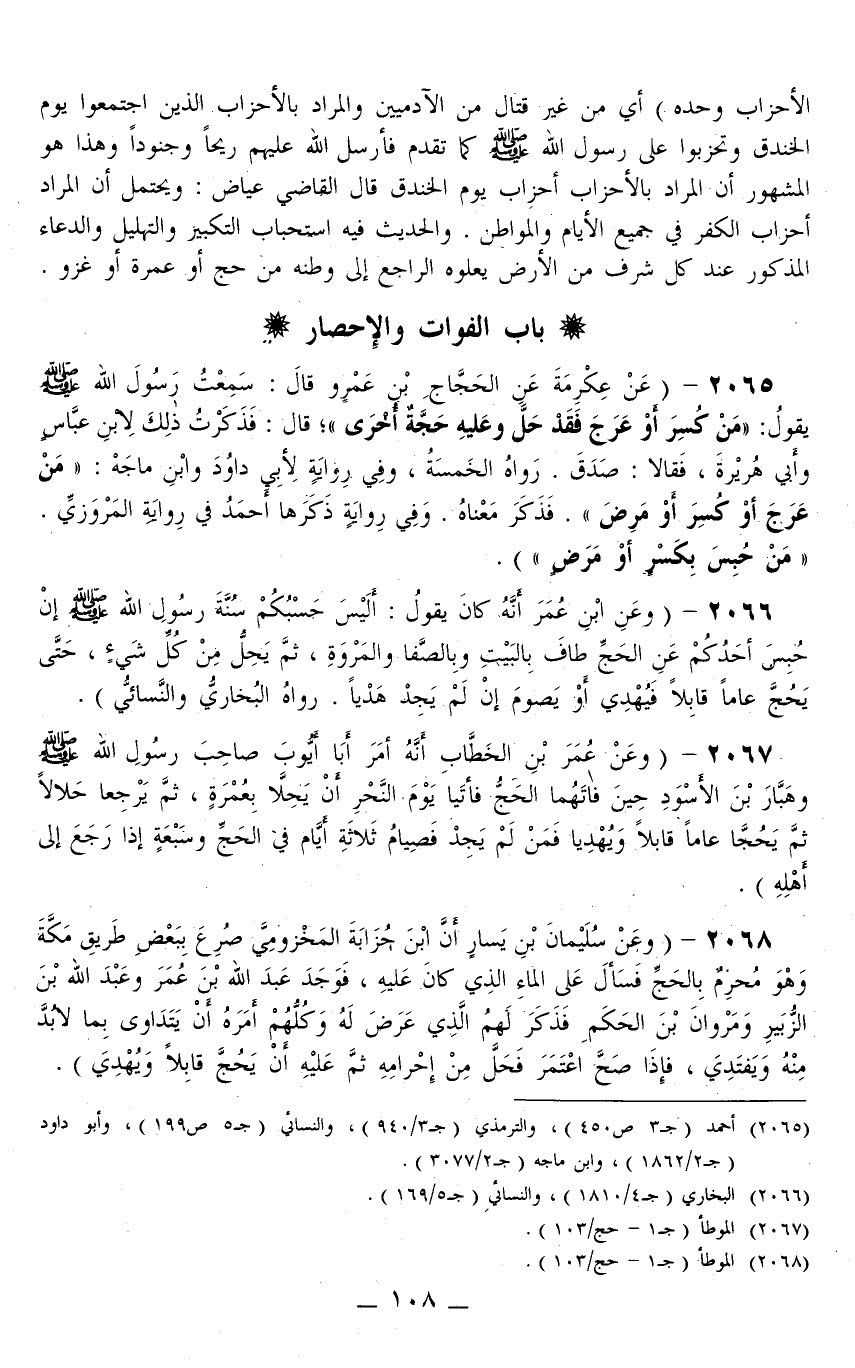 الأحزاب وحده ) أي من غير قتال من الآدميين والمراد بالأحزاب الذين اجتمعوا يوم
الخندق وتحزبوا على رسول الله ﷺ كما تقدم فأرسل الله عليهم ريحاً وجنوداً وهذا هو
المشهور أن المراد بالأحزاب أحزاب يوم الخندق قال القاضي عياض : ويحتمل أن المراد
أحزاب الكفر في جميع الأيام والمواطن . والحديث فيه استحباب التكبير والتهليل والدعاء
المذكور عند كل شرف من الأرض يعلوه الراجع إلى وطنه من حج أو عمرة أو غزو .
باب الفوات والإحصار
٢٠٦٥ – ( عَنْ عِكْرِمَةَ عَنِ الحَجَّاجِ بْنِ عَمْرٍو قالَ : سَمِعْتُ رَسُولَ الله ﷺ
يقولُ: «مَنْ كُسِرَ أوْ عَرَجَ فَقَدْ حَلَّ وعَليهِ حَجَّةٌ أُخْرَى »؛ قال : فَذَكَرْتُ ذٰلِكَ لِابنِ عبَّاسٍ
وأَبي هُرَيْرةَ ، فَقالا : صَدَقَ . رَواهُ الخَمسَةُ ، وفِي رِوَايَةٍ لِأبي داوُدَ وابْنِ ماجَهْ : « مَنْ
عَرَجَ أوْ كُسِرَ أوْ مَرِضَ » . فَذَكَرَ مَعْناهُ . وَفِي رِوايَةٍ ذَكَرَها أَحمَدُ في رِوايَةِ المَرْوَزيِّ .
« مَنْ حُبِسَ بِكَسْرٍ أوْ مَرَضٍ » ) .
٢٠٦٦ – ( وعَنِ ابْنِ عُمَرَ أَنَّهُ كانَ يقولُ : أَلَيْسَ حَسْبُكُمْ سُنَّةَ رسولِ الله ﷺ إنْ
حُبِسَ أحَدُكُمْ عَنِ الحَجِّ طافَ بِالبَيْتِ وبِالصَّفا والمَرْوَةِ ، ثمَّ يَحِلُّ مِنْ كُلِّ شَيءٍ ، حَتَّى
يَحُجَّ عاماً قابِلاً فَيُهْدِي أوْ يَصومَ إنْ لَمْ يَجِدْ هَدْياً . رواهُ البُخاريُّ والنَّسائيُّ ) .
٢٠٦٧ – ( وعَنْ عُمَرَ بْنِ الخَطَّابِ أَنَّهُ أمَرَ أَبَا أَيُّوبَ صاحِبَ رسُولِ الله ﷺ
وهَبَّارَ بْنَ الأَسْوَدِ حِينَ فاتَهُما الحَجُّ فأتَيا يَوْمَ النَّحْرِ أنْ يَحِلَّا بِعُمْرَةٍ ، ثمَّ يَرْجِعا حَلالاً
ثمَّ يَحُجَّا عاماً قابلاً وَيُهْدِيا فَمَنْ لَمْ يَجِدْ فَصِيامُ ثَلاثَةِ أَيَّام في الحَجِّ وسَبْعَةٍ إذا رَجَعَ إلى
أَهْلِهِ ) .
٢٠٦٨ – ( وعَنْ سُلَيْمانَ بْنِ يَسارٍ أنَّ ابْنَ حُزَابَةَ المَخْزوميَّ صُرِعَ بِبَعْضِ طَريقِ مَكَّةَ
وَهْوَ مُحرِمٌ بِالحَجِّ فَسَألَ عَلى الماءِ الذِي كانَ عَليهِ ، فَوَجَدَ عَبدَ الله بْنَ عُمَرَ وعَبْدَ الله بْنَ
الزُّبَيرِ وَمَرْوانَ بْنَ الحَكَمِ فَذَكَرَ لَهمُ الَّذِي عَرَضَ لَهُ وَكُلُّهُمْ أَمَرَهُ أَنْ يَتَدَاوى بِما لابُدَّ
مِنْهُ وَيَفتَدِيَ ، فإذَا صَحَّ اعْتَمَرَ فَحَلَّ مِنْ إِحْرامِهِ ثمَّ عَلَيْهِ أَنْ يَحُجَّ قابِلاً وَيُهْدِيَ ) .
(٢٠٦٥) أحمد ( جـ٣ ص٤٥٠) ، والترمذي ( جـ٩٤٠/٣ ) ، والنسائي ( جـ٥ ص١٩٩ ) ، وأبو داود
( جـ١٨٦٢/٢ ) ، وابن ماجه ( جـ٣٠٧٧/٢ ) .
(٢٠٦٦) البخاري ( جـ١٨١٠/٤ ) ، والنسائي ( جـ١٦٩/٥ ) .
(٢٠٦٧) الموطأ ( جـ١ – حج/١٠٣ ) .
(٢٠٦٨) الموطأ ( جـ١ – حج/١٠٣ ) .
– ١٠٨ –